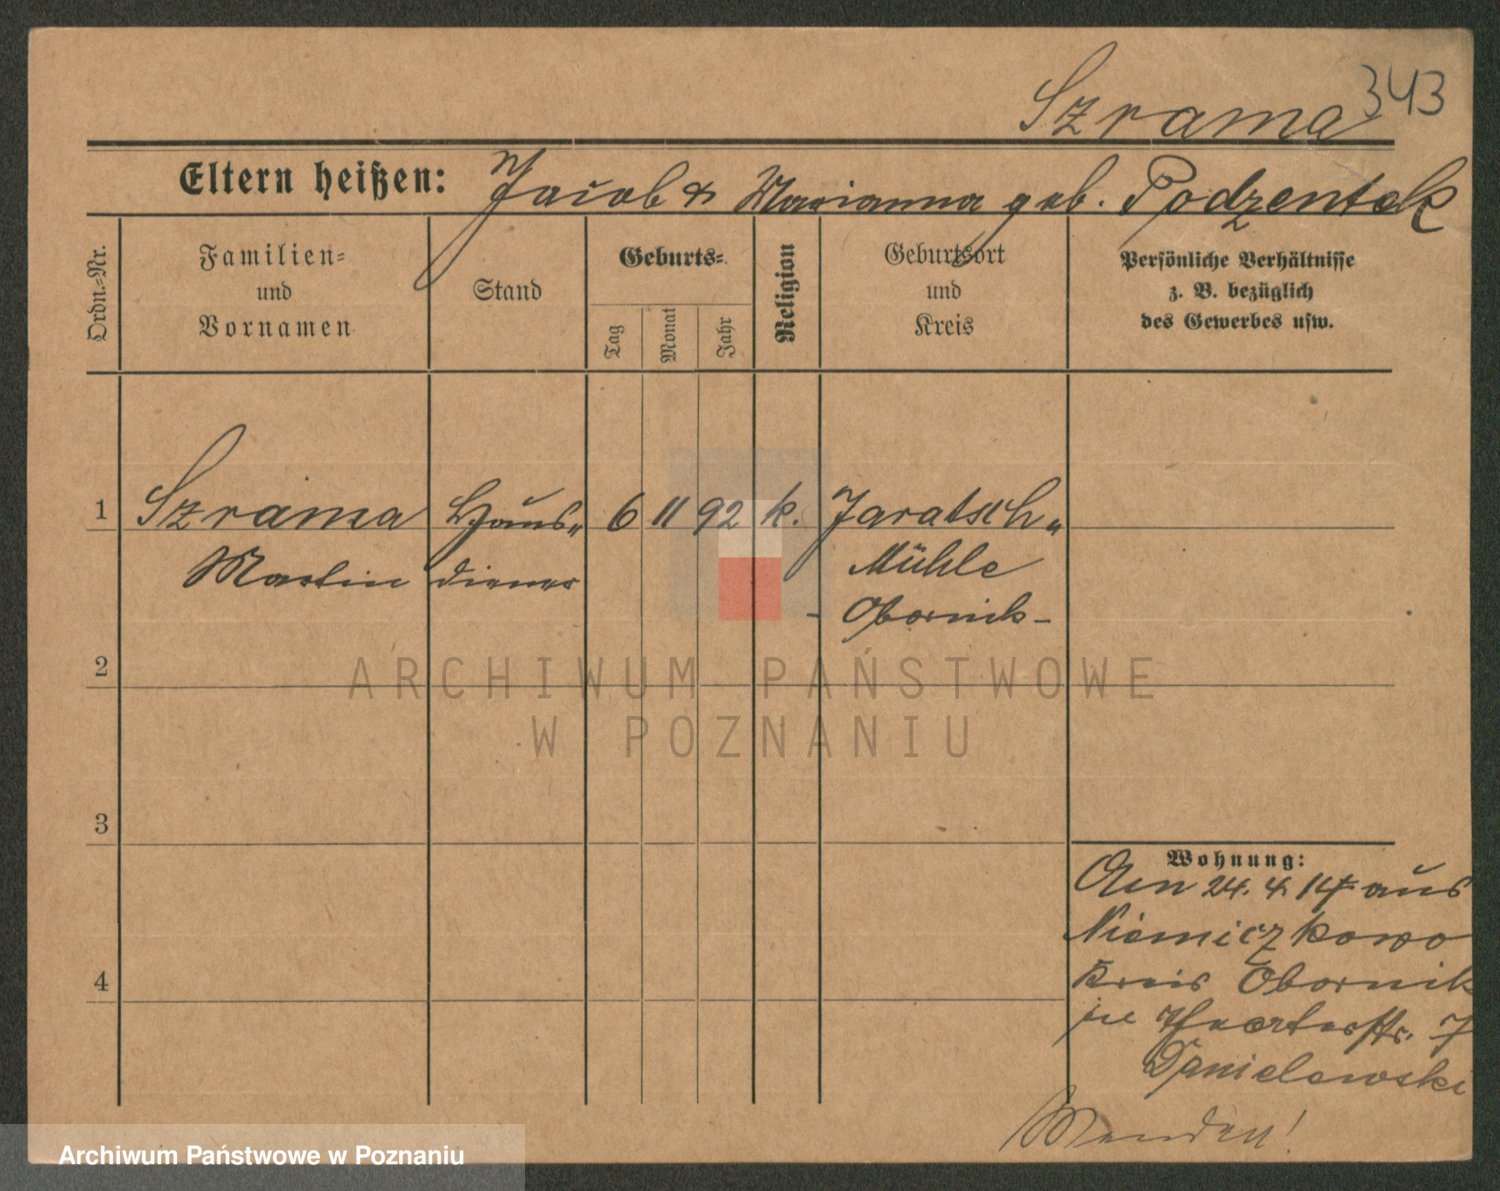 343
Szrama
Eltern heißen: Jacob & Marianna geb. Podzentek
Ordn.-Nr.
Familien-
und
Vornamen
Stand
Geburts-
Tag
Monat
Jahr
Religion
Geburtsort
und
Kreis
Persönliche Verhältnisse
z. B. bezüglich
des Gewerbes usw.
1 Szrama Haus- 6 11 92 k. Jaratsch-
Martin diener Mühle
- Obornik -
2
ARCHIWUM PAŃSTWOWE
W POZNANIU
3
Wohnung:
Am 24. 4. 14 aus
Niemiczkowo
4
Kreis Obornik
in 7
Danielewski
Wenden!
Archiwum Państwowe w Poznaniu